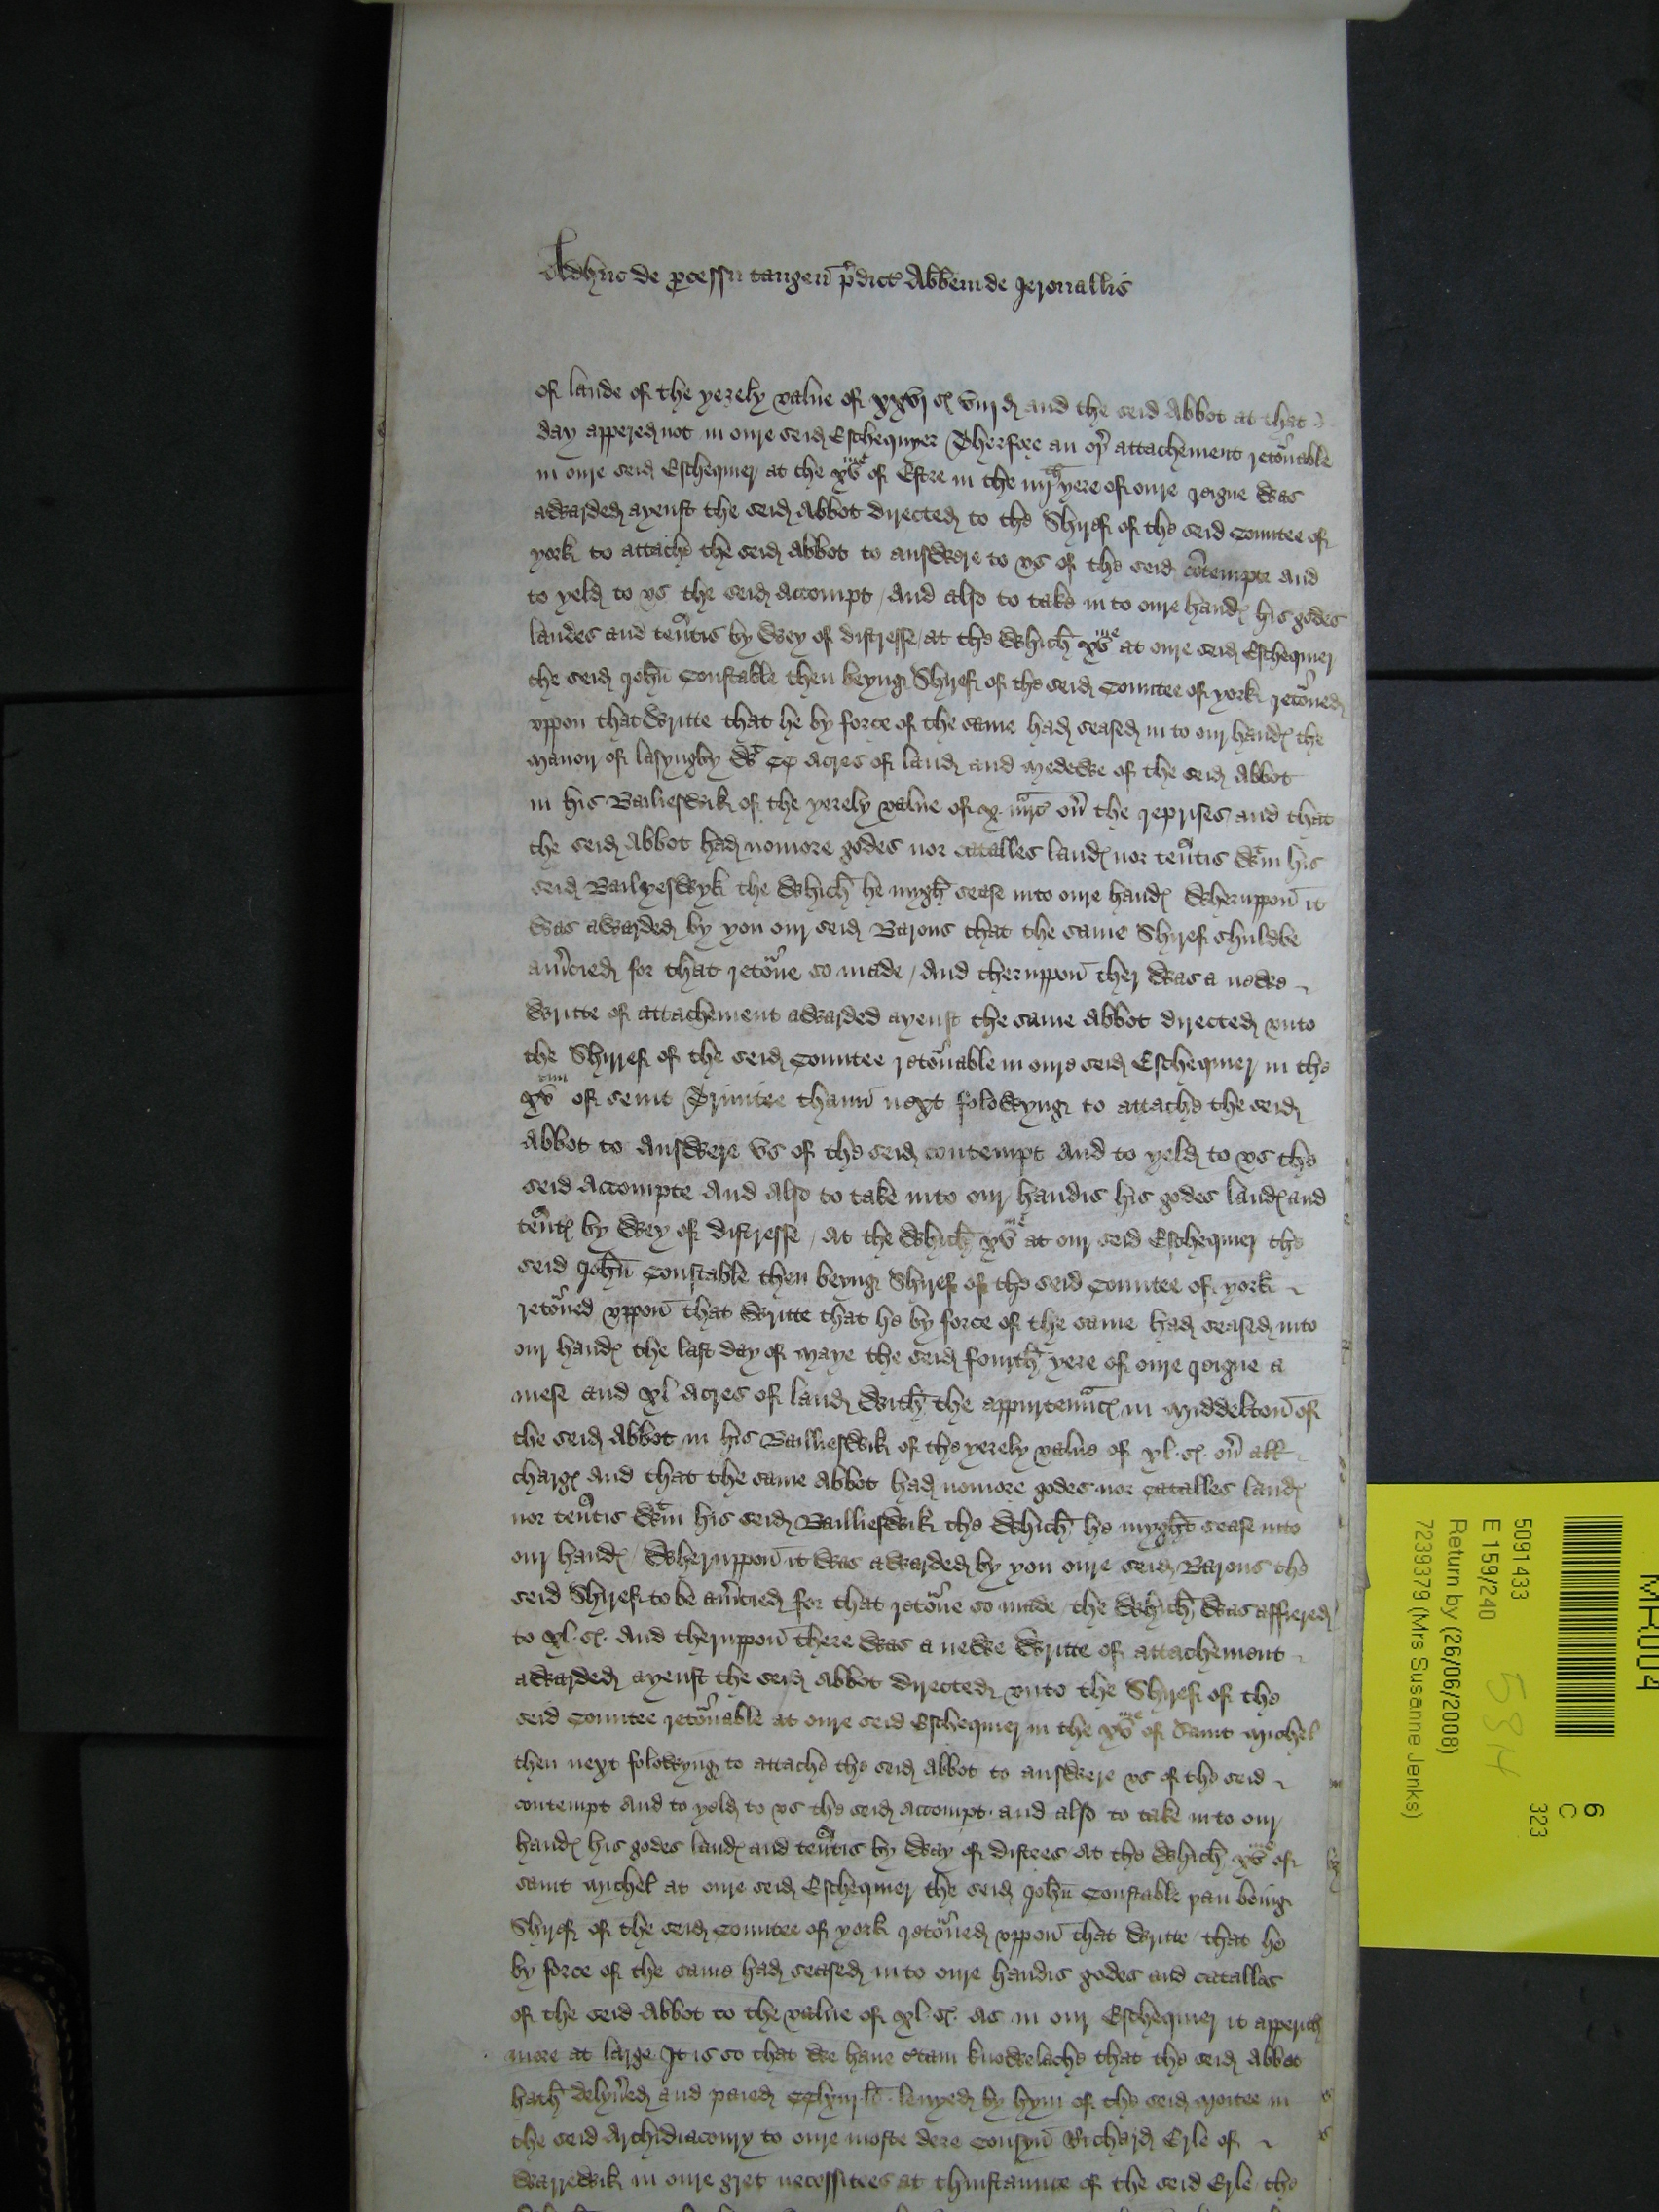 Adhuc de processu tangen̄ p̄dict Abbem de Jerovallis
of lande of the yerely value of xxvj s viij d and the seid Abbot at that
day appered not in oure seid Eschequyer Therfore an oþ attachement retornable
in oure seid Eschequier at the xv me of Estre in the iiij th yere of oure reigne was
awarded ayenst the seid Abbot directed to the Shyref of the seid Countee of
york to attache the seid Abbot to answere to vs of the seid cōtempte and
to yeld to vs the seid Accompt / And also to take in to oure hand his godes
landes and teñtis by wey of distresse / at the which xv me at oure seid Eschequier
the seid John Constable then beyng Shyref of the seid Countee of york retorned
vppon that writte that he by force of the same had seased in to our hand the
Manoir of lasyngby wt CC acres of land and medewe of the seid Abbot
in his Bailieswik of the yerely value of x m̃rc oũ the reprises and that
the seid Abbot had nomore godes nor catalles land nor teñtis wtin his
seid Bailyeswyk the which he mygh sease into oure hand Wheruppon it
was awarded by you our seid Barons that the same Shyref shuldbe
am̃cied for that retorne so made / And theruppon ther was a newe
writte of attachement awarded ayenst the same Abbot directed vnto
the Shyref of the seid Countee retornable in oure seid Eschequier in the
xv of seint Trinitee thann next folowyng to attache the seid
Abbot to Answere vs of the seid contempt And to yeld to vs the
seid Accompte And Also to take into our handis his godes land and
teñt by wey of distresse / At the which xv me at our seid Eschequier the
seid John Constable then beyng Shyref of the seid Countee of york
retorned vppon that writte that he by force of the same had seased into
our hand the last day of Maye the seid fourth yere of oure reigne a
mese and xl acres of land with the appurtenñc in Middelton of
the seid Abbot in his Baillieswik of the yerely value of xl s oũ all
charg And that the same Abbot had nomore godes nor catalles land
nor teñtis wtin his seid Baillieswik the which he myght sease into
our hand / Wheruppon it was awarded by you oure seid Barons the
seid Shyref to be am̃cied for that retorne so made / the which was affiered
to xl s And theruppon there was a newe writte of attachement
awarded ayenst the seid Abbot directed vnto the Shyref of the
seid Countee retornable at oure seid Eschequier in the xv me of Saint Michel
then next folowyng to attache the seid Abbot to answere vs of the seid
contempt and to yeld to vs the seid accompt and also to take in to our
hand his godes land and teñtis by way of distres At the which xv me of
saint Michel at oure seid Eschequier the seid John Constable þan being
Shyref of the seid Countee of york retorned vppon that writte / that he
by force of the same had seased in to oure handis godes and catalles
of the seid Abbot to the value of xl s As in our Eschequier it apperith
more at large It is so that we haue c̃tain knowelache that the seid Abbot
hath delyũed and paied CClxiij li leuyed by hym of the seid moitee in
the seid Archidiaconry to oure moste dere Cousyn Richard Erle of
Warrewik in oure gret necessitees at thinstaunce of the seid Erle the
MR004
5091433
E 159/240
Return by (26/06/2008)
7239379 (Mrs Susanne Jenks)
6
C
323
5814